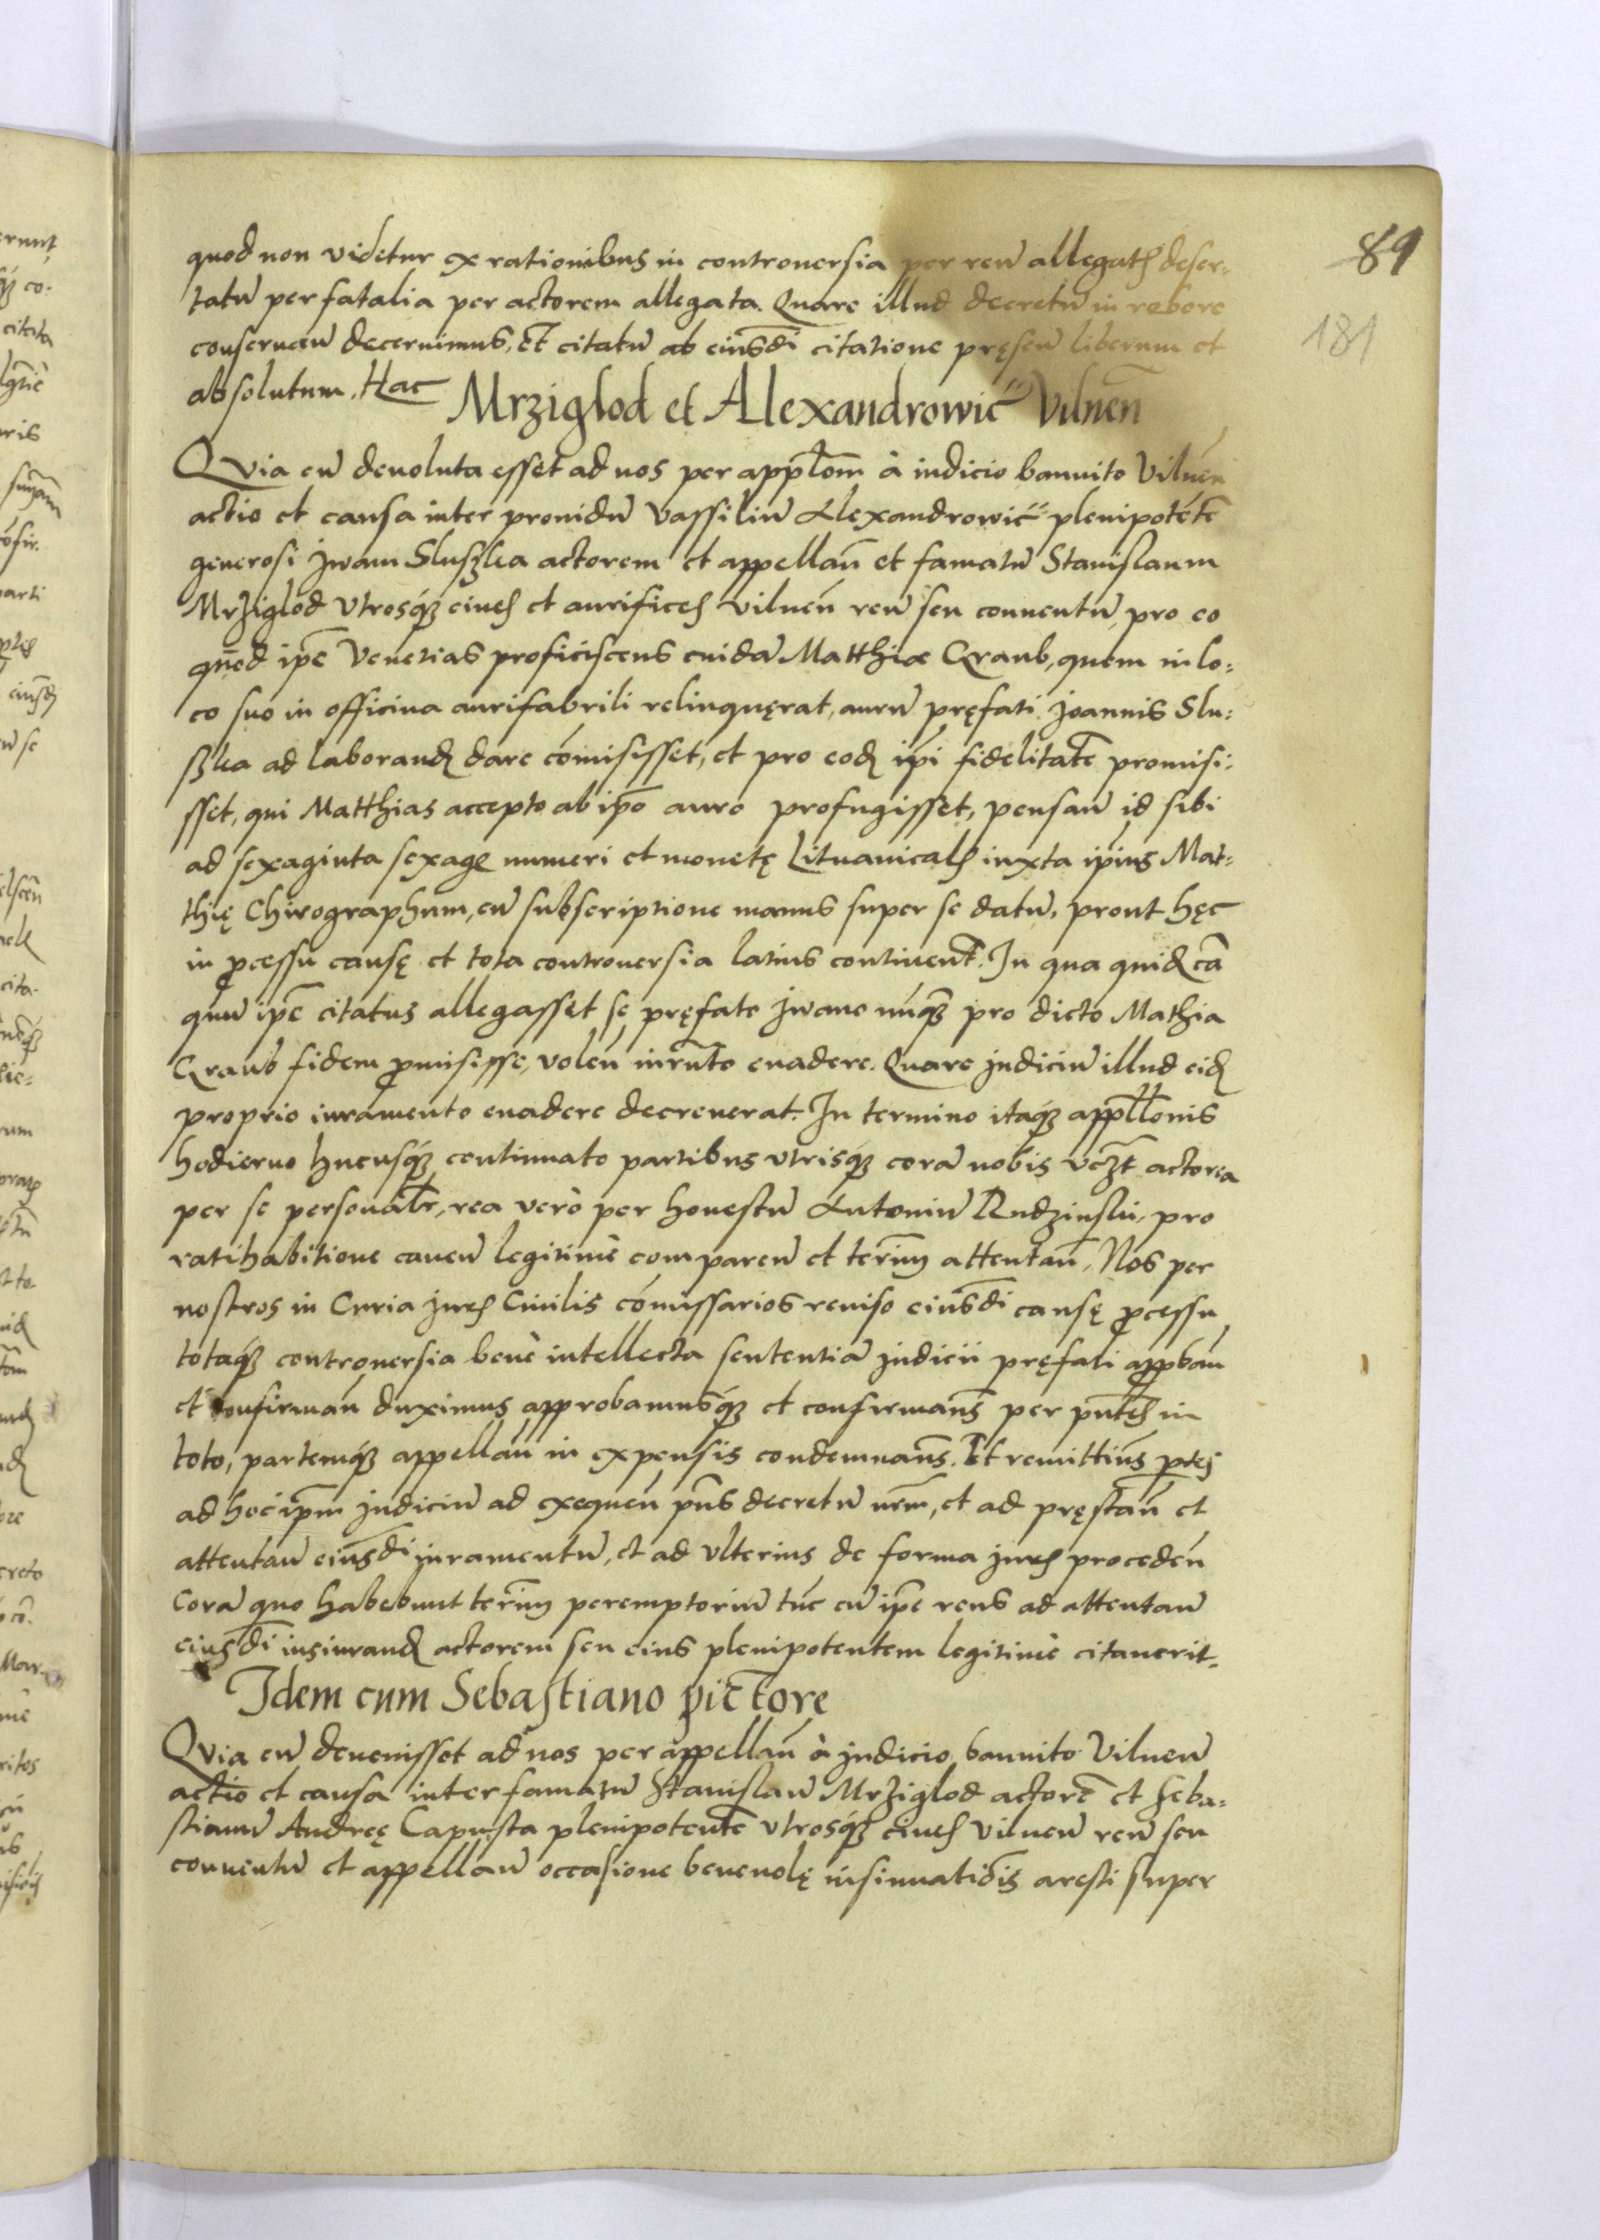 89
181
quod non videtur ex rationibus in controuersia per reū allegatis deser-
tatū per fatalia per actorem allegata. Quare illud decretū in robore
conseruān decernimus, Et citatū ab eiusdī citatione pręsen̄ liberum et
absolutum. Hac
Mrziglod et Alexandrowic Vilnen̄
Quia cū deuoluta esset ad nos per appl̄om̄ à iudicio bannito Vilnen̄
actio et causa inter prouidū Vassiliū Alexandrowic plenipotētē
generosi Jwam Slusʒka actorem et appellan̄ et famatū Stanislaum
Mrziglod vtrosqʒ ciues et aurifices Vilnen̄ reū seu conuentū, pro eo
quod ip̄e Venetias proficiscens cuidā Matthiæ Graub, quem in lo-
co suo in officina aurifabrili relinquęrat, aurū pręfati Joannis Slu-
sʒka ad laborand dare cōmisisset, et pro eod ip̄i fidelitatē promisi-
sset, qui Matthias accepto ab ip̄o auro profugisset, pensan̄ id sibi
ad sexaginta sexage numeri et monetę Lituanicalis iuxta ip̄ius Mat-
thię Chirographum, cū subscriptione manus super se datū, prout hęc
in p̄cessu causę et tota controuersia latius continent̄. In qua quid cā
quū ip̄e citatus allegasset se pręfato Jwano nūqʒ pro dicto Mathia
Graub fidem p̄misisse, volen̄ iurn̄to euadere. Quare judiciū illud eid
proprio iuramento euadere decreuerat. In termino itaqʒ appl̄lonis
hodierno hucusqʒ continuato partibus vtrisqʒ corā nobis vcʒt actorea
per se personalr̄, rea verò per honestū Antoniū Rudzinski, pro
ratihabitione cauen̄ legitimè comparen̄ et term̄ attentan̄, Nos per
nostros in Curia juris Ciuilis cōmissarios reuiso eiusdī causę p̄cessu
totaqʒ controuersia benè intellecta sententiā judicii pręfati app̄ban̄
et confirman̄ duximus approbamusqʒ et confirmam̄s per pn̄tes in
toto, partemqʒ appellan̄ in expensis condemnam̄s. Et remittim̄s p̄tes
ad hoc ip̄m judiciū ad exequen̄ pn̄s decretū nr̄m, et ad pręstan̄ et
attentan̄ eiusdī iuramentū, et ad vlterius de forma juris proceden̄
Corā quo habebunt term̄ peremptoriū tūc cū ip̄e reus ad attentan̄
eiusdī iusiurand actorem seu eius plenipotentem legitimè citauerit.
Idem cum Sebastiano pictore
Quia cū deuenisset ad nos per appellan̄ à judicio bannito Vilnen̄
actio et causa inter famatū Stanislaū Mrziglod actorē et Seba-
stianū Andreę Capusta plenipotentē vtrosqʒ ciues Vilnen̄ reū seu
conuentū et appellan̄ occasione beneuolę insinuatiōis aresti super